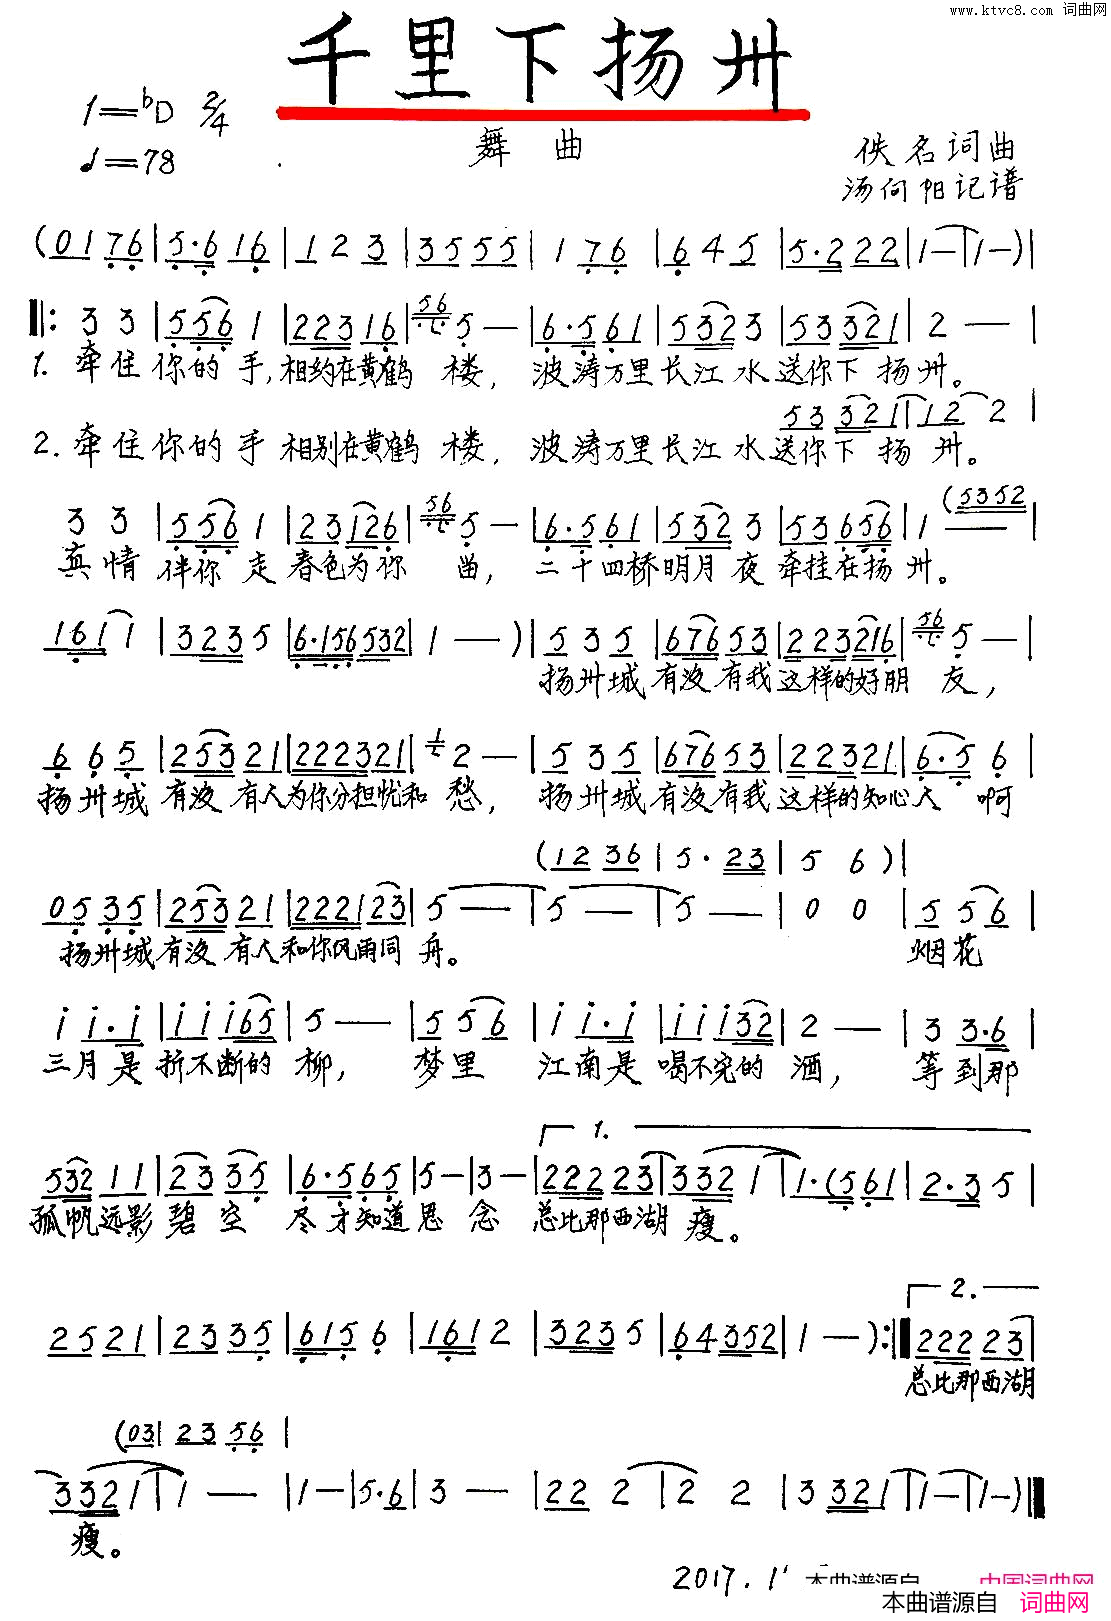 www.ktvc8.com 词曲网
千里下扬州
1=bD 2/4
♩=78
舞曲
佚名词曲
汤向阳记谱
(0 1 7 6 | 5·6 1 6 | 1 2 3 | 3 5 5 5 | 1 7 6 | 6 4 5 | 5·2 2 2 | 1 — | 1 — )
‖: 3 3 | 5 5 6 1 | 2 2 3 1 6 | 5 6 5 — | 6·5 6 1 | 5 3 2 3 | 5 3 3 2 1 | 2 — |
1. 牵住你的手,相约在黄鹤楼,波涛万里长江水送你下扬州。
5 3 3 2 1 | 1 2 2 |
2. 牵住你的手相别在黄鹤楼,波涛万里长江水送你下扬州。
(5 3 5 2
3 3 | 5 5 6 1 | 2 3 1 2 6 | 5 6 5 — | 6·5 6 1 | 5 3 2 3 | 5 3 6 5 6 | 1 — |
真情伴你走春色为你留,二十四桥明月夜牵挂在扬州。
1 6 1 1 | 3 2 3 5 | 6·1 5 6 5 3 2 | 1 — ) | 5 3 5 | 6 7 6 5 3 | 2 2 3 2 1 6 | 5 6 5 — |
扬州城有没有我这样的好朋友,
6 6 5 | 2 5 3 2 1 | 2 2 2 3 2 1 | 1 2 — | 5 3 5 | 6 7 6 5 3 | 2 2 3 2 1 | 6·5 6 |
扬州城有没有人为你分担忧和愁,扬州城有没有我这样的知心人啊
(1 2 3 6 | 5·2 3 | 5 6 ) |
0 5 3 5 | 2 5 3 2 1 | 2 2 2 1 2 3 | 5 — | 5 — | 5 — | 0 0 | 5 5 6 |
扬州城有没有人和你风雨同舟。烟花
i i·i | i i i 6 5 | 5 — | 5 5 6 | i i·i | i i i 3 2 | 2 — | 3 3·6 |
三月是折不断的柳,梦里江南是喝不完的酒,等到那
1.
5 3 2 1 1 | 2 3 3 5 | 6·5 6 5 | 5 — | 3 — | 2 2 2 2 3 | 3 3 2 1 | 1·(5 6 1 | 2·3 5 |
孤帆远影碧空尽才知道思念总比那西湖瘦。
2.
2 5 2 1 | 2 3 3 5 | 6 1 5 6 | 1 6 1 2 | 3 2 3 5 | 6 4 3 5 2 | 1 — ) :‖ 2 2 2 2 3 |
总比那西湖
(0 3 | 2 3 5 6 |
3 3 2 1 | 1 — | 1 — | 5·6 | 3 — | 2 2 2 | 2 2 | 3 3 2 1 | 1 — | 1 — ) ‖
瘦。
2017.1
本曲谱源自 中国词曲网
本曲谱源自 词曲网